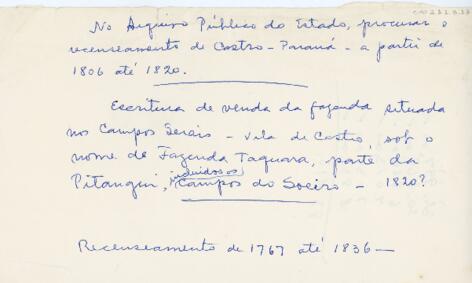 No Arquivo Público do Estado, procurar o
recenseamento de Castro - Paraná - a partir de
1806 até 1820.
Escritura de venda da fazenda situada
nos Campos Gerais - Vila de Castro, sob o
nome de Fazenda Taquara, parte da
incluidos os
Pitangui, Campos do Sociro - 1820?
Recenseamento de 1767 até 1836 —